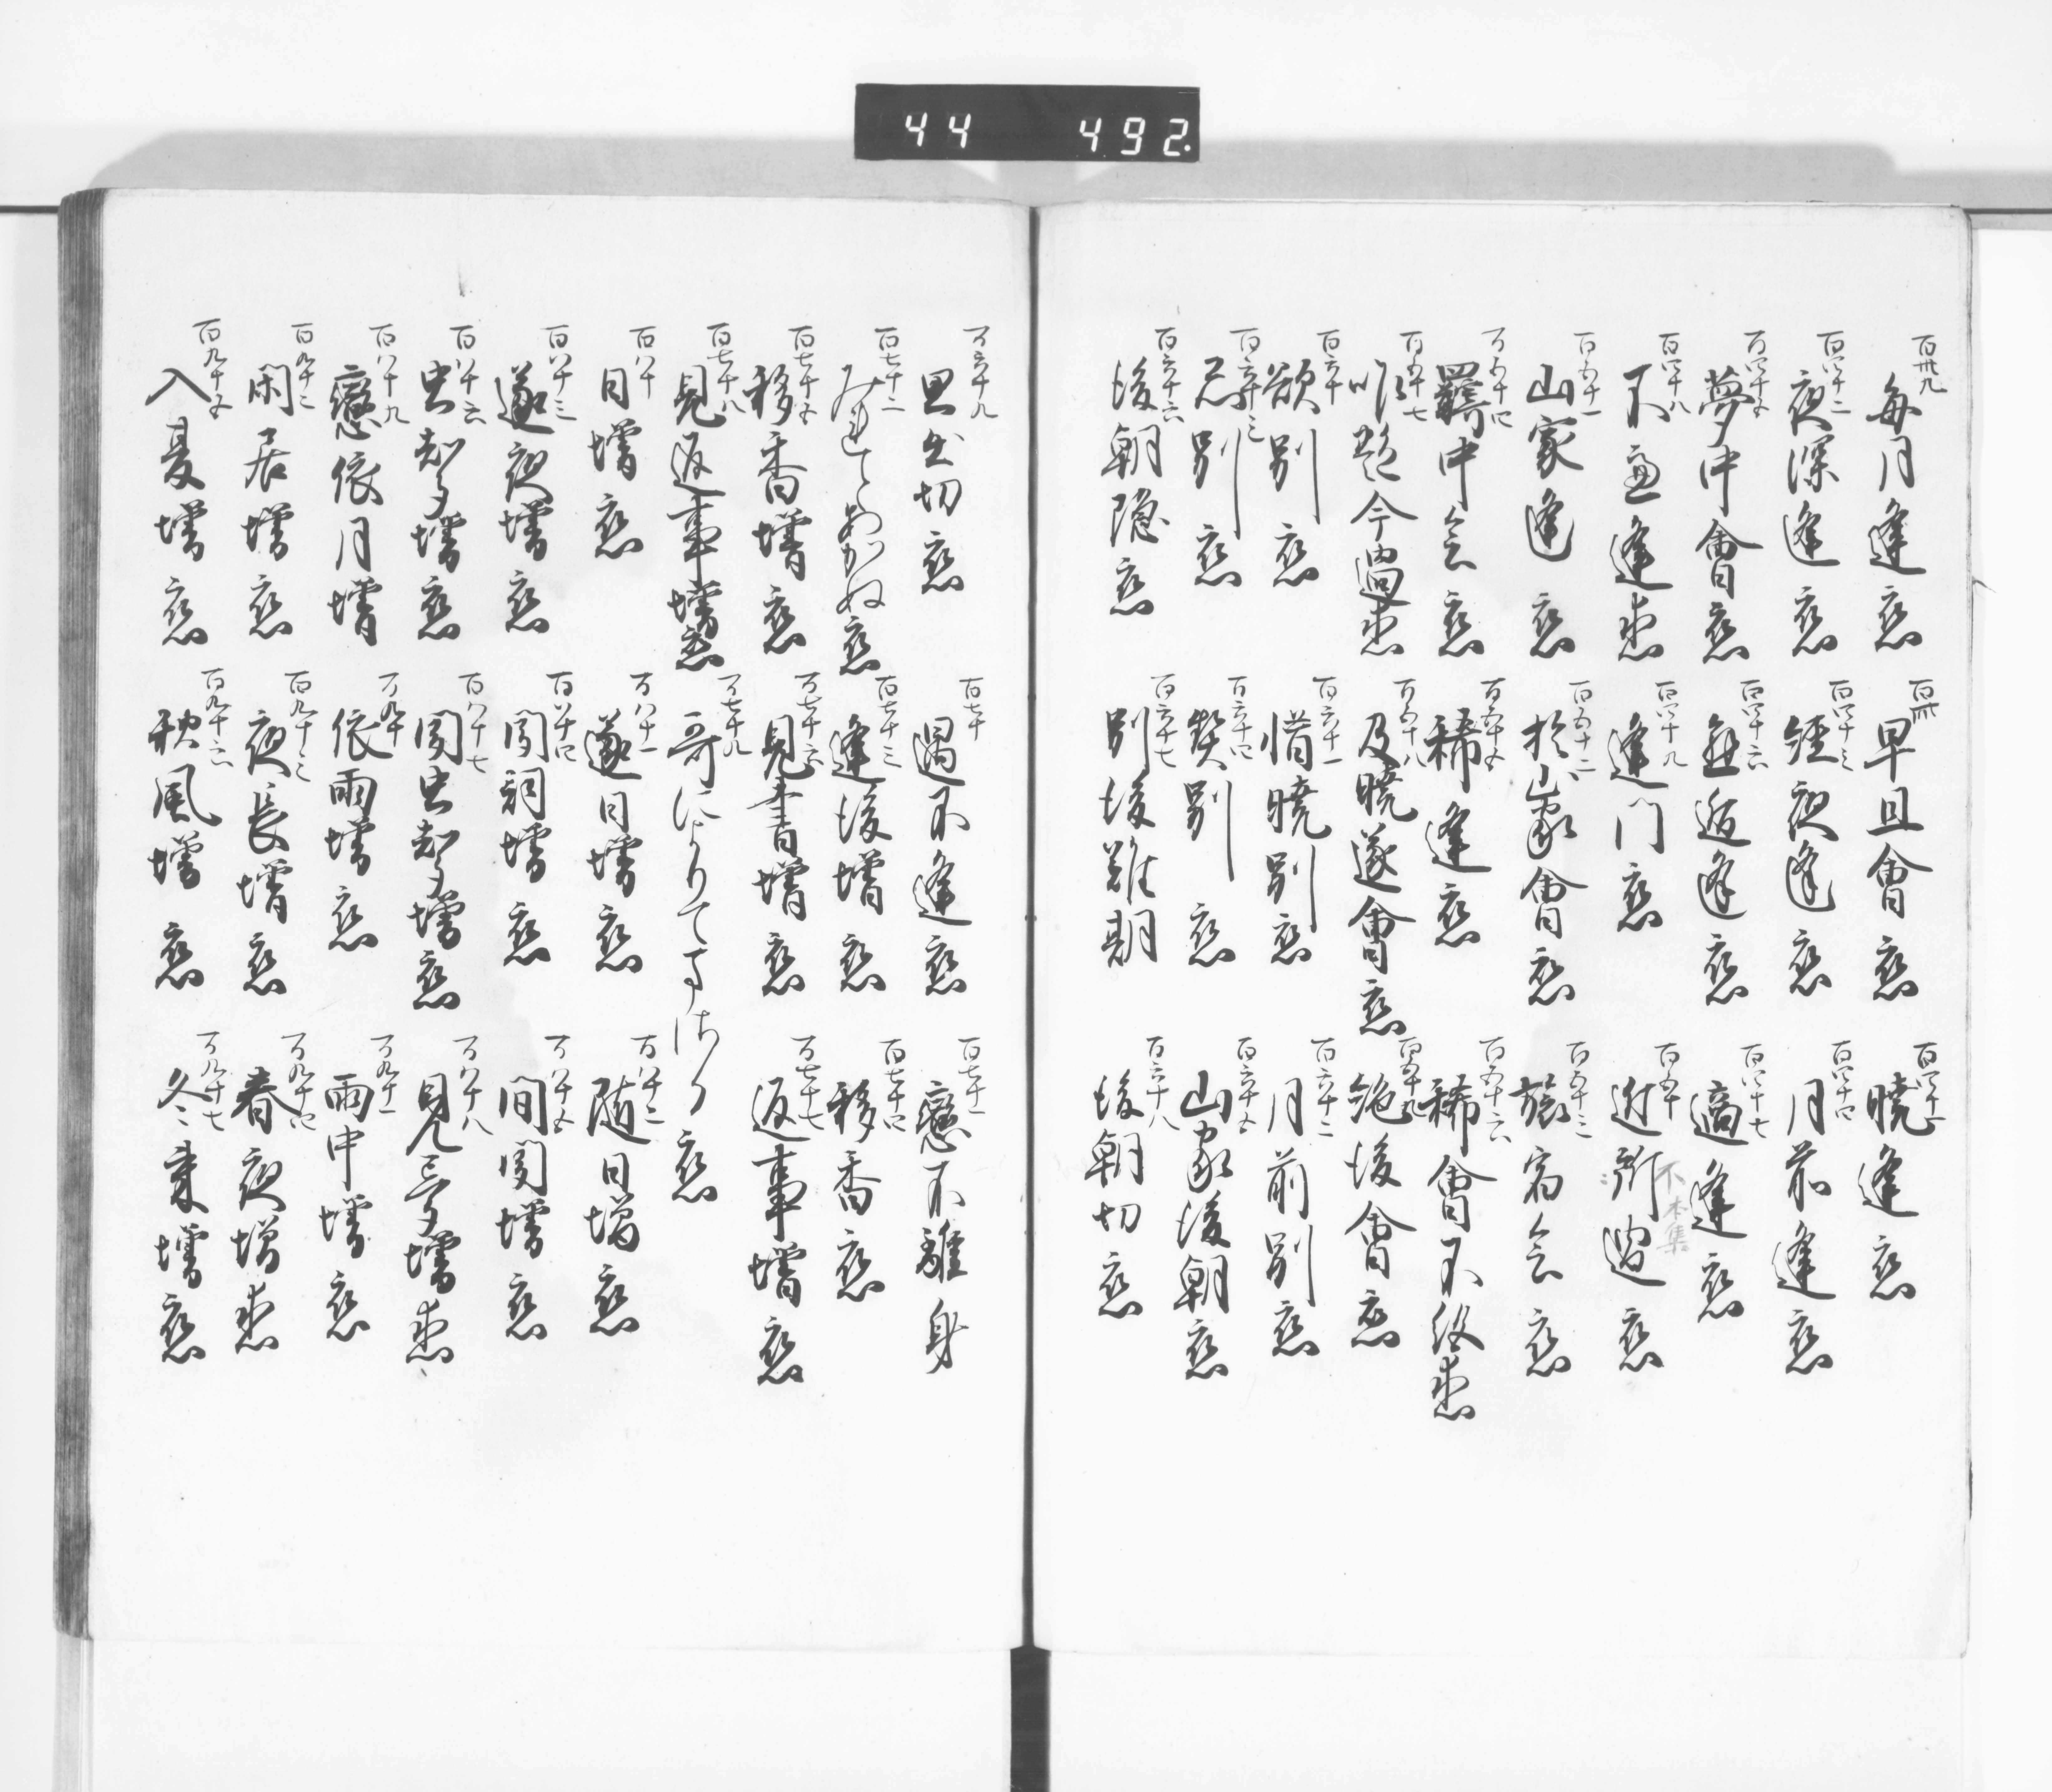 44 492
百卅九 毎月逢恋
百卌 早旦會恋
百四十一 暁逢恋
百四十二 夜深逢恋
百四十三 経夜逢恋
百四十四 月前逢恋
百四十五 夢中會恋
百四十六 適逢恋
百四十七 適逢恋
百四十八 不意逢恋
百四十九 逢門恋
百五十 近所遇恋
不
本集
百五十一 山家逢恋
百五十二 於山家會恋
百五十三 旅宿会恋
百五十四 羇中会恋
百五十五 稀逢恋
百五十六 稀會不終恋
百五十七 昨愁今遇恋
百五十八 及暁遂會恋
百五十九 絶後會恋
百六十 欲別恋
百六十一 惜暁別恋
百六十二 月前別恋
百六十三 忍別恋
百六十四 契別恋
百六十五 山家後朝恋
百六十六 後朝隠恋
百六十七 別後難期
百六十八 後朝切恋
百六十九 思出切恋
百七十 遇不逢恋
百七十一 戀不離身
百七十二 みれとあかぬ恋
百七十三 逢後増恋
百七十四 移香恋
百七十五 移香増恋
百七十六 見書増恋
百七十七 返事増恋
百七十八 見返事増恋
百七十九 哥によりてまさる恋
百八十 日増恋
百八十一 逐日増恋
百八十二 随日増恋
百八十三 逐夜増恋
百八十四 聞詞増恋
百八十五 間聞増恋
百八十六 虫声増恋
百八十七 聞虫声増恋
百八十八 見夢増恋
百八十九 戀依月増
百九十 依雨増恋
百九十一 雨中増恋
百九十二 閑居増恋
百九十三 夜長増恋
百九十四 春夜増恋
百九十五 入夏増恋
百九十六 秋風増恋
百九十七 冬来増恋